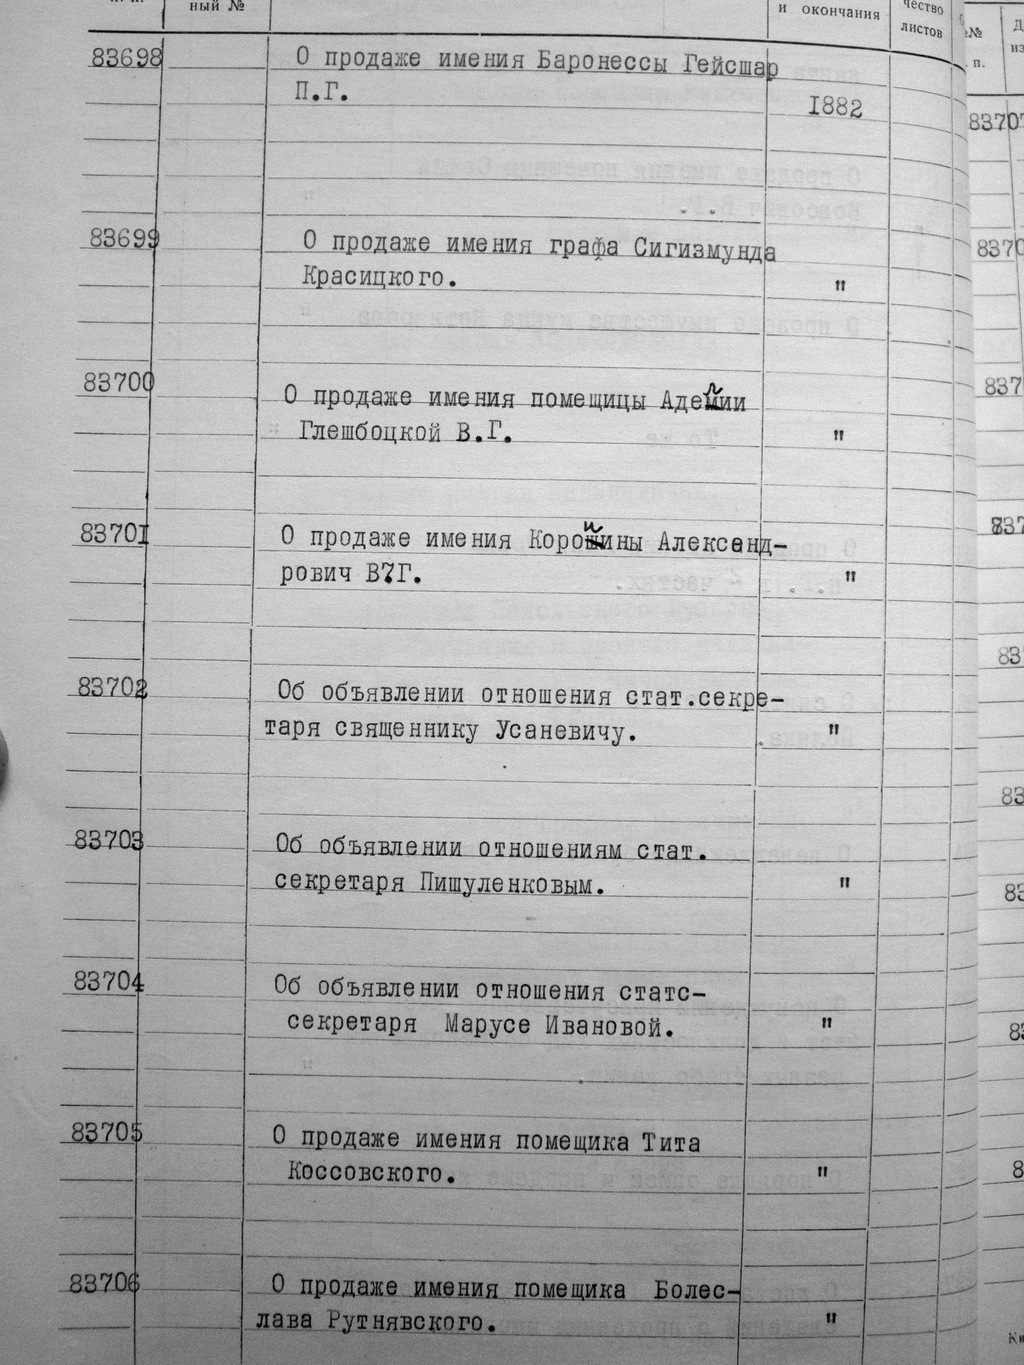 ный №
и окончания
чество
листов
83698 О продаже имения Баронессы Гейсшар
П.Г. 1882
83699 О продаже имения графа Сигизмунда
Красицкого. "
83700 О продаже имения помещицы Аделии
Глешбоцкой В.Г. "
83701 О продаже имения Коройины Александ-
рович В7Г. "
83702 Об объявлении отношения стат.секре-
таря священнику Усаневичу. "
83703 Об объявлении отношениям стат.
секретаря Пишуленковым. "
83704 Об объявлении отношения статс-
секретаря Марусе Ивановой. "
83705 О продаже имения помещика Тита
Коссовского. "
83706 О продаже имения помещика Болес-
лава Рутнявского. "